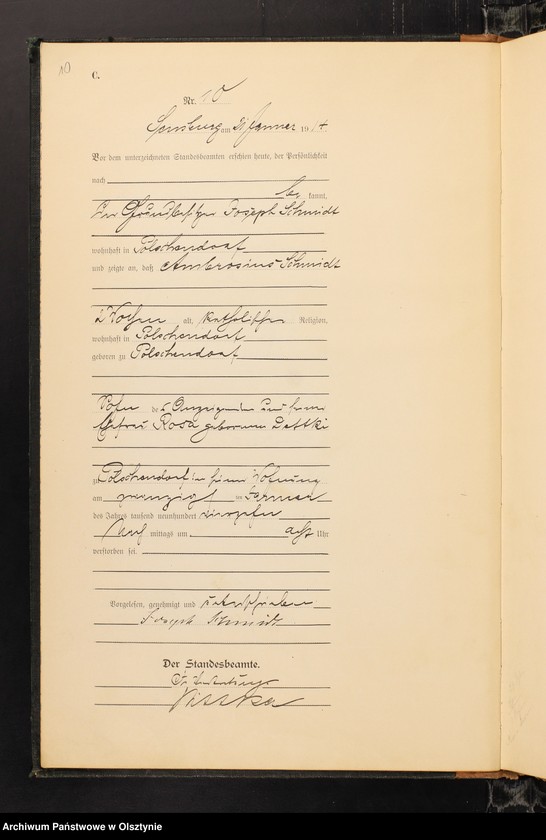 10
C.
Nr. 10
Sensburg am 21 Januar 1914
Vor dem unterzeichneten Standesbeamten erschien heute, der Persönlichkeit
nach
be kannt,
der Grundbesitzer Joseph Schmidt
wohnhaft in Polschendorf
und zeigte an, daß Ambrosius Schmidt
2 Wochen alt, katholischer Religion,
wohnhaft in Polschendorf
geboren zu Polschendorf
Sohn des Anzeigenden und seiner
Ehefrau Rosa geborenen
zu Polschendorf in seiner Wohnung
am zwanzigsten Januar
des Jahres tausend neunhundert vierzehn
Nach mittags um acht Uhr
verstorben sei.
Vorgelesen, genehmigt und unterschrieben
Joseph Schmidt
Der Standesbeamte.
In Vertretung
Archiwum Państwowe w Olsztynie